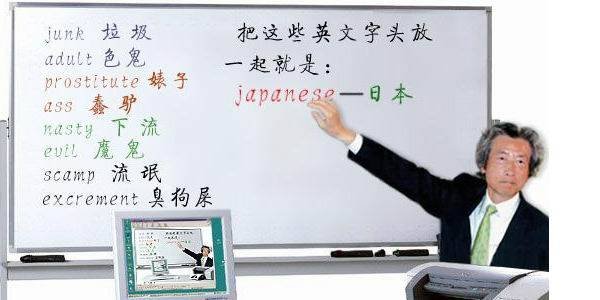 junk 垃圾
adult 色鬼
prostitute 婊子
ass 蠢驴
nasty 下流
evil 魔鬼
scamp 流氓
excrement 臭狗屎
把这些英文字头放
一起就是：
japanese—日本